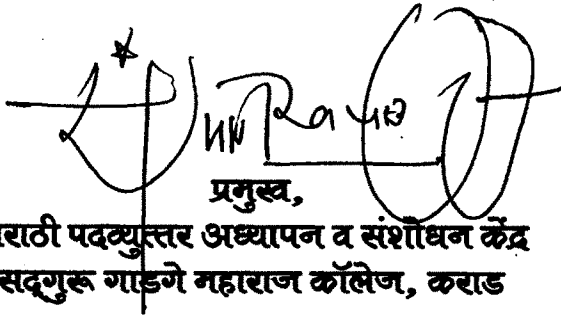 प्रमुख,
राठी पदव्युत्तर अध्यापन व संशोधन केंद्र
सद्‌गुरू गाडगे महाराज कॉलेज, कराड